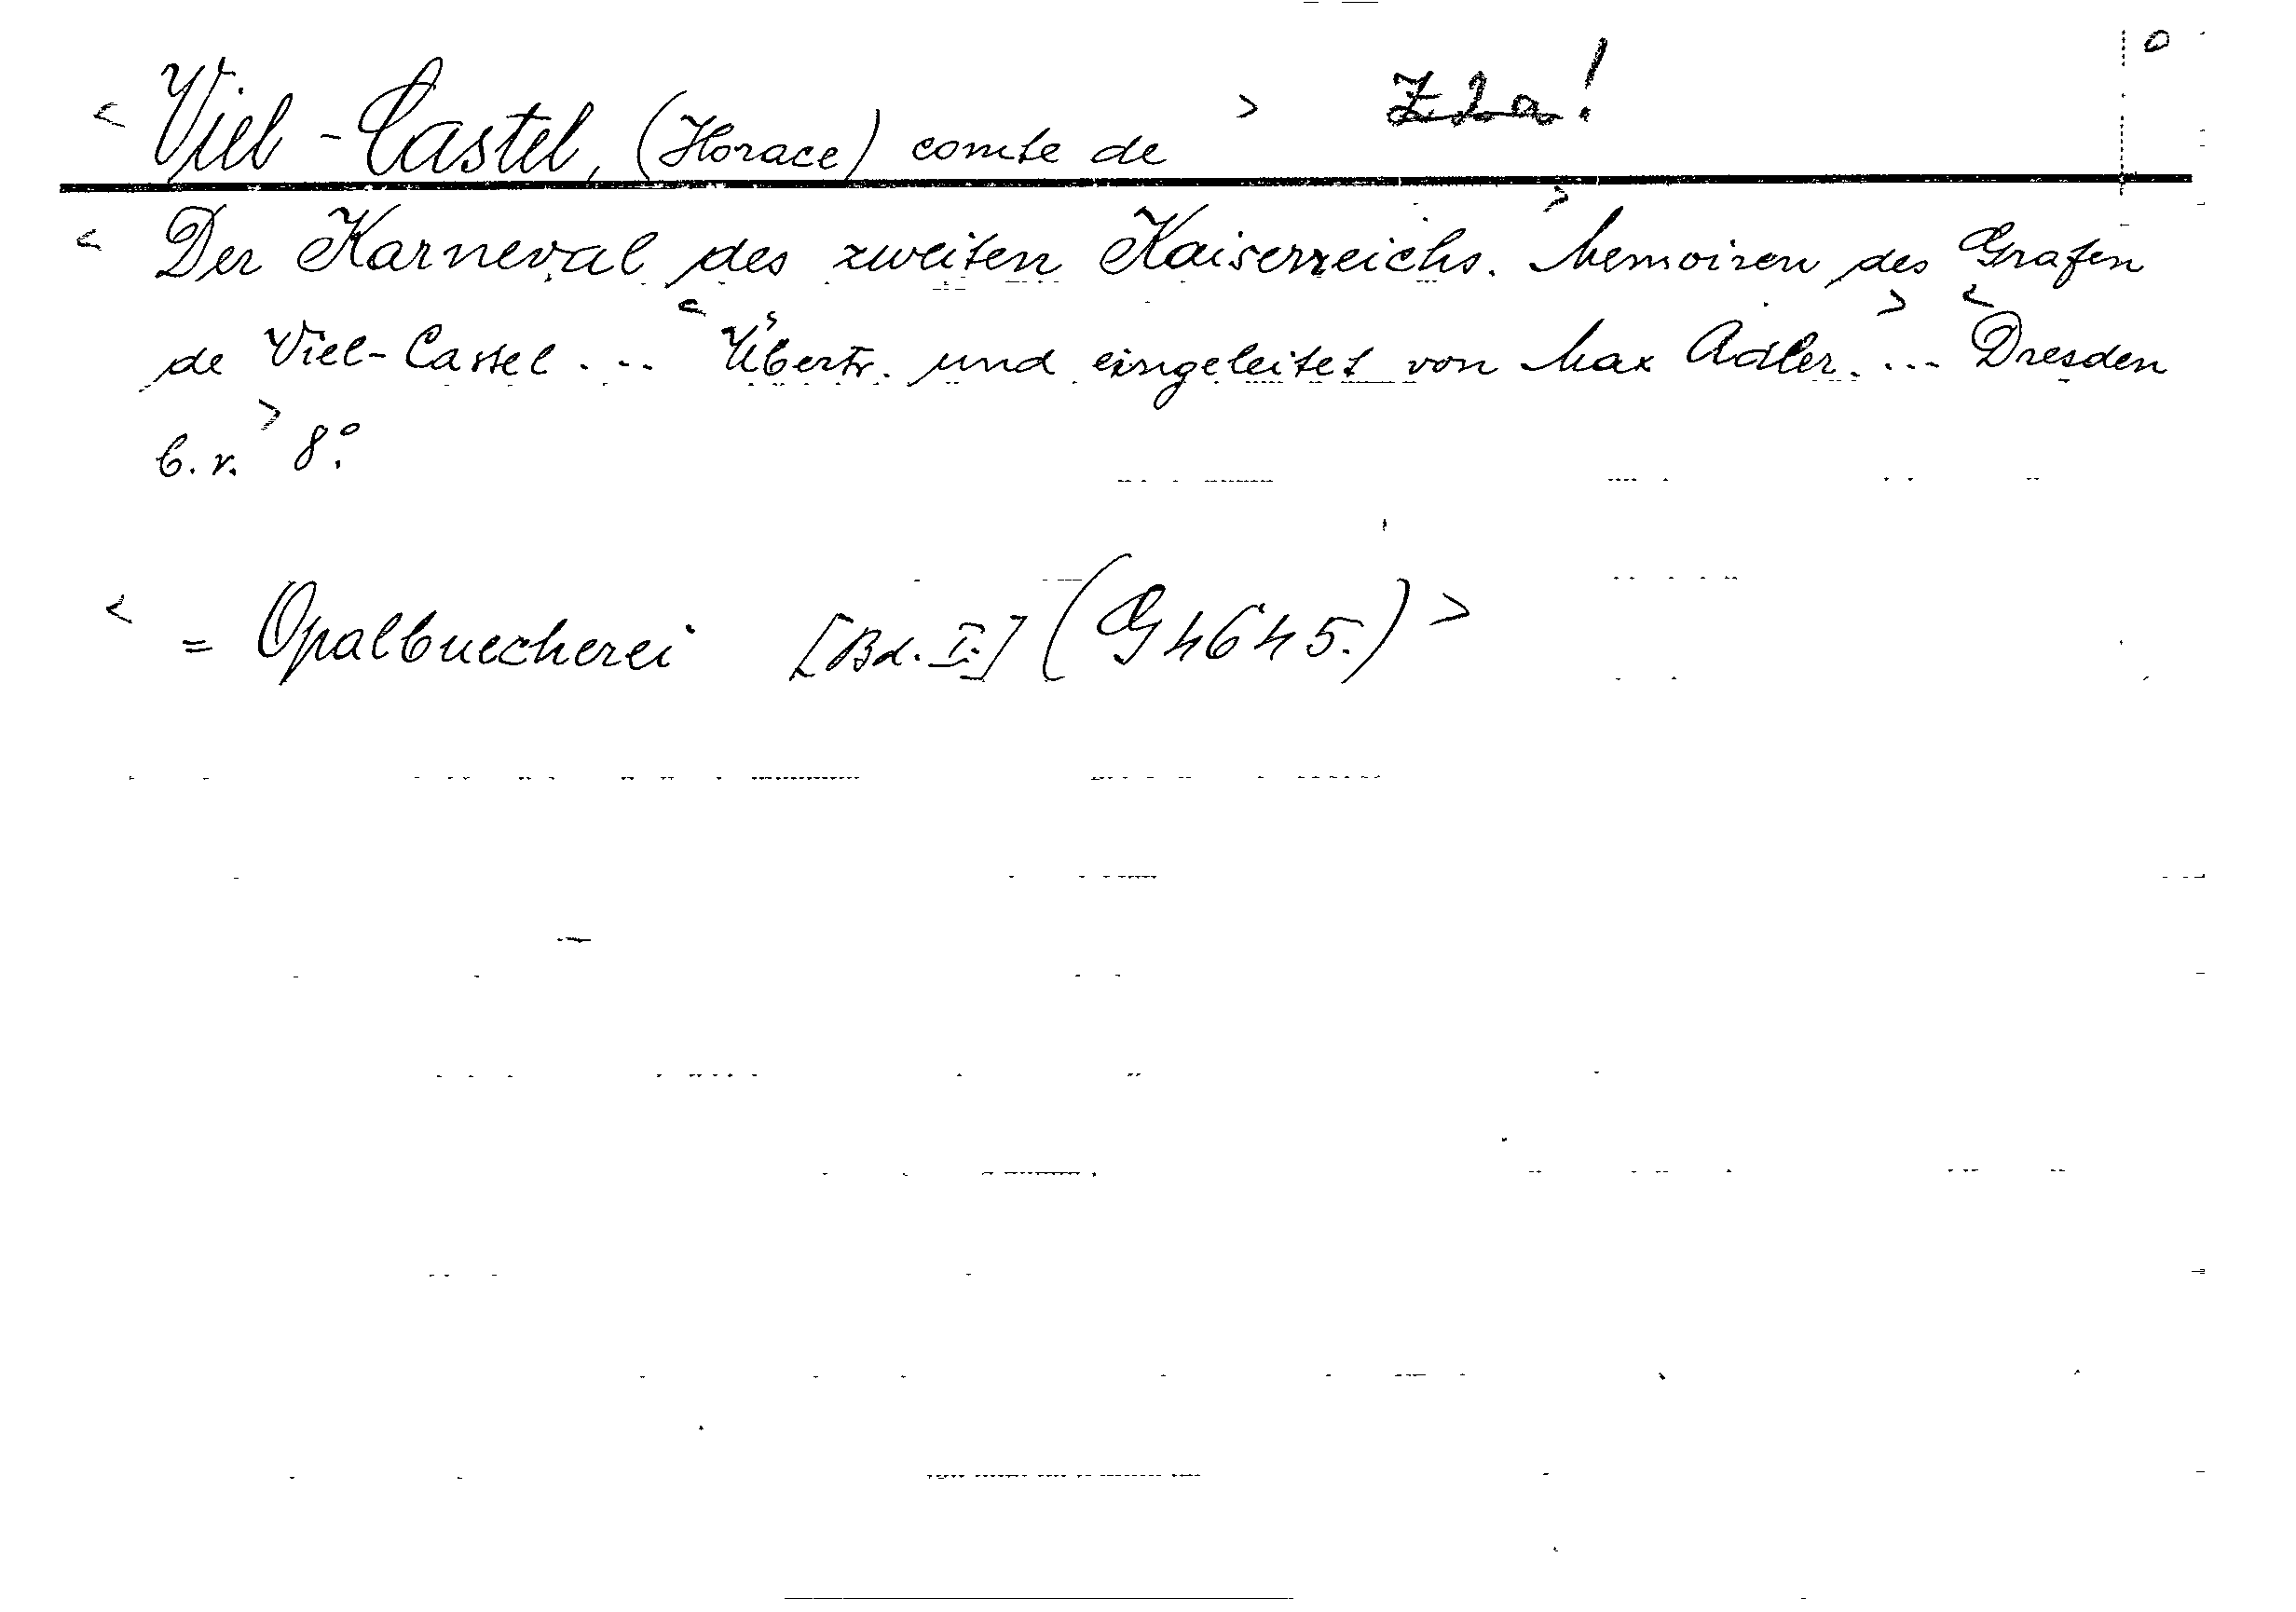 < Viel-Castel, (Horace) comte de > Z2a!
< Der Karneval des zweiten Kaiserreichs. > Memoiren des Grafen
de Viel-Castel ... < Übertr. und eingeleitet von Max Adler. > ... < Dresden
É.n. > 8°.
< = Opalbuecherei [Bd. I.] (G 4645.) >